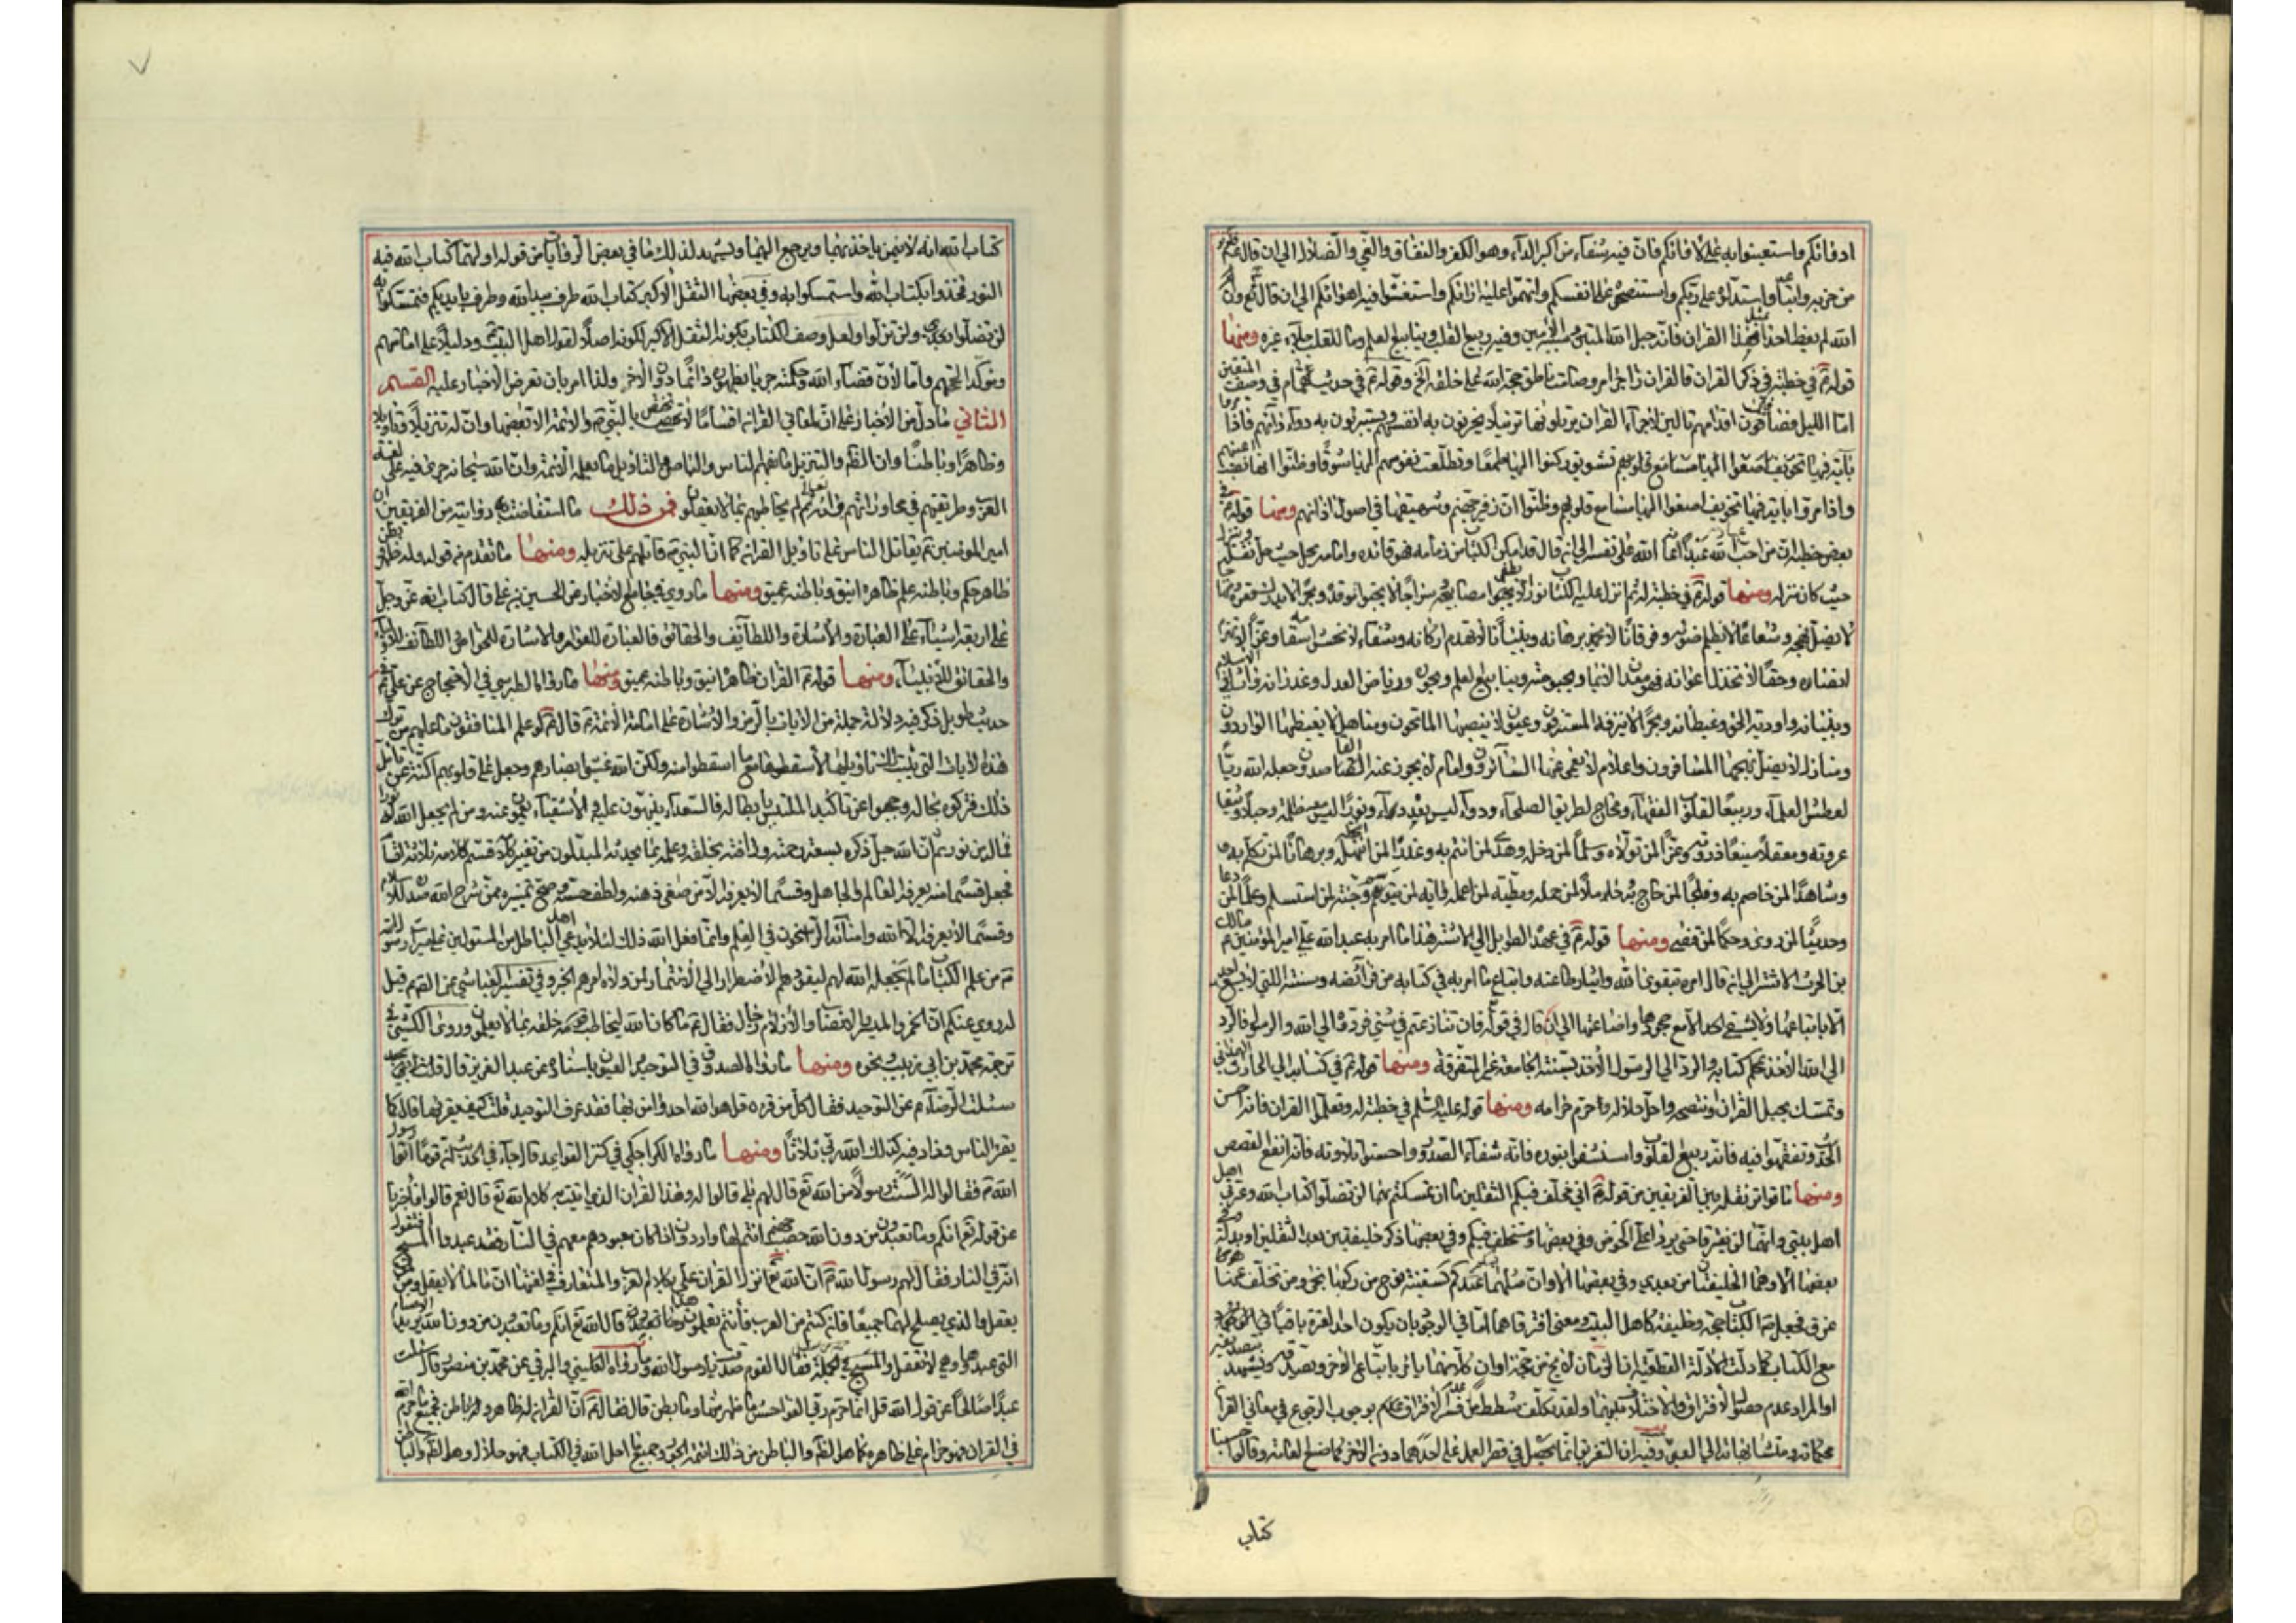 ادوائكم واستعينوا به على لاوائكم فان فيه شفاء من اكبر الداء وهو الكفر والنفاق والغي والضلال الى ان قال
من حزبه واتباعه واستدلوه على ربكم واستنصحوه على انفسكم واتهموا عليه ارائكم واستغشوا فيه اهوائكم الى ان قال ع وان
الله لم يعظ احدا بمثل هذا القران فانه حبل الله المتين وسببه الامين وفيه ربيع القلب وينابيع العلم وما للقلب جلاء غيره ومنها
قوله ع في خطبته في ذكر القران فالقران زاجر امر وصامت ناطق حجة الله على خلقه الخ وقوله ع في حديث همام في وصف المتقين
اما الليل فصافون اقدامهم تالين لاجزاء القران يرتلونها ترتيلا يحزنون به انفسهم ويستثيرون به دواء دائهم فاذا مروا
باية فيها تشويق ركنوا اليها طمعا وتطلعت نفوسهم اليها شوقا وظنوا انها نصب اعينهم
واذا مروا باية فيها تخويف اصغوا اليها مسامع قلوبهم وظنوا ان زفير جهنم وشهيقها في اصول اذانهم ومنها قوله ع في
بعض خطبه ان من احب عباد الله عبدا اعانه الله على نفسه الى انه قال قد امكن الكتاب من زمامه فهو قائده وامامه يحل حيث حل ثقله وينزل
حيث كان منزله ومنها قوله ع في خطبة له ثم انزل عليه الكتاب نورا لا تطفى مصابيحه وسراجا لا يخبو توقده وبحرا لا يدرك قعره ومنهاجا
لا يضل نهجه وشعاعا لا يظلم ضوئه وفرقانا لا يخمد برهانه وبنيانا لا تهدم اركانه وشفاء لا تخشى اسقامه وعزا لا تهزم
انصاره وحقا لا تخذل اعوانه فهو معدن الايمان وبحبوحته وينابيع العلم وبحوره ورياض العدل وغدرانه واثافي الاسلام
وبنيانه واودية الحق وغيطانه وبحر لا ينزفه المستنزفون وعيون لا ينضبها الماتحون ومناهل لا يغيضها الواردون
ومنازل لا يضل نهجها المسافرون واعلام لا يعمى عنها السائرون واكام لا يجوز عنها القاصدون جعله الله ريا
لعطش العلماء وربيعا لقلوب الفقهاء ومحاج لطريق الصلحاء ودواء ليس بعده داء ونورا ليس معه ظلمة وحبلا وثيقا
عروته ومعقلا منيعا ذروته وعزا لمن تولاه وسلما لمن دخله وهدى لمن ائتم به وعذرا لمن انتحله وبرهانا لمن تكلم به
وشاهدا لمن خاصم به وفلجا لمن حاج به وحاملا لمن حمله ومطية لمن اعمله واية لمن توسم وجنة لمن استلأم وعلما لمن وعى
وحديثا لمن روى وحكما لمن قضى ومنها قوله ع في عهده الطويل الى الاشتر هذا ما امر به عبد الله علي امير المؤمنين ع مالك
بن الحرث الاشتر الى انه قال امره بتقوى الله وايثار طاعته واتباع ما امر به في كتابه من فرائضه وسننه التي لا يسعد احد
الا باتباعها ولا يشقى احد الا مع جحودها واضاعتها الى ان قال في قوله فان تنازعتم في شيء فردوه الى الله والرسول فالرد
الى الله الاخذ بمحكم كتابه والرد الى الرسول الاخذ بسنته الجامعة غير المتفرقة ومنها قوله ع في كتابه الى الحارث الهمداني
وتمسك بحبل القران وانتصحه واحل حلاله وحرم حرامه ومنها قوله عليه السلم في خطبة له وتعلموا القران فانه احسن
الحديث وتفقهوا فيه فانه ربيع القلوب واستشفوا بنوره فانه شفاء الصدور واحسنوا تلاوته فانه انفع القصص
ومنها ما تواتر نقله بين الفريقين من قوله ص اني مخلف فيكم الثقلين ما ان تمسكتم بهما لن تضلوا كتاب الله وعترتي
اهل بيتي وانهما لن يفترقا حتى يردا على الحوض وفي بعضها مستخلف فيكم وفي بعضها ذكر خليفتين بعد الثقلين او بدله
بعضها الا وهما الخليفتان من بعدي وفي بعضها الا وان مثلهما عندكم كسفينة نوح من ركبها نجى ومن تخلف عنها
غرق فجعل ص الكتاب حجة وخليفة كاهل البيت ومعنى افتراقهما
مع الكتاب كما دلت الادلة القطعية ان الزمان لا يخ من حجة اوان كلا منهما يامر باتباع الاخر وتصديقه
او المراد عدم حصول الافتراق والاختلاف بينهما ولقد تكلف شططا من فسر الافتراق بوجوب الرجوع في معاني القران
محكماته ومتشابهاته الى العترة وفيه ان التفريق انما يحصل في قصر العمل على احدهما دون الاخر كما صنع العامة وقالوا حسبنا
كتاب
كتاب الله انه لا يتم من ياخذ بهما ويرجع اليهما ويشهد لذلك ما في بعض الروايات من قوله اولهما كتاب الله فيه
النور فخذوا بكتاب الله واستمسكوا به وفي بعضها الثقل الاكبر كتاب الله طرف بيد الله وطرف بايديكم فتمسكوا به
لن تضلوا بعدي ولن تزلوا ولعل وصف الكتاب بكونه الثقل الاكبر لكونه اصلا لقول اهل البيت ودليلا على امامتهم
القسم
الثاني ما دل من الاخبار على ان لمعاني القران اقساما لا تختص بالنبي ص والائمة الا بعضها وان له تنزيلا وتاويلا
وظاهرا وباطنا وان الظاهر والتنزيل ما يفهم الناس والباطن والتاويل ما يعلمه الائمة وان الله سبحانه جرى فيه على لغة
العرب وطريقتهم في محاوراتهم وانه تعالى لم يخاطبهم بما لا يعقلون فمن ذلك ما استفاضت به روايته من الفريقين ان
امير المؤمنين ع يقاتل الناس على تاويل القران كما ان النبي ص قاتلهم على تنزيله ومنها ما تقدم من قوله وله ظهر وبطن
ظاهره حكم وباطنه علم ظاهره انيق وباطنه عميق ومنها ما روي في جامع الاخبار عن الحسين بن علي قال كتاب الله عز وجل
على اربعة اشياء على العبارة والاشارة واللطائف والحقائق فالعبارة للعوام والاشارة للخواص واللطائف للاولياء
والحقائق للانبياء ومنها قوله ع القران ظاهره انيق وباطنه عميق ومنها ما رواه الطبرسي في الاحتجاج عن علي ع في
حديث طويل ذكر فيه دلالة جملة من الايات بالرمز والاشارة على امامة الائمة ثم قال ع لو علم المنافقون ما عليهم من ترك
هذه الايات التي بينت لك تاويلها لاسقطوها مع ما اسقطوا منه ولكن الله غشي ابصارهم وجعل على قلوبهم اكنة عن تامل
ذلك فتركوه بحاله وحجبوا عن تاكيد الملتبس بابطاله فالسعداء ينبهون عليه والاشقياء يعمون عنه ومن لم يجعل الله له نورا
فما له من نور ثم ان الله جل ذكره بسعة رحمته ورافته بخلقه وعلمه بما يحدثه المبدلون من تغيير كلامه قسم كلامه ثلاثة اقسام
فجعل قسما منه يعرفه العالم والجاهل وقسما لا يعرفه الا من صفى ذهنه ولطف حسه وصح تمييزه ممن شرح الله صدره للاسلام
وقسما لا يعرفه الا الله وامناؤه الراسخون في العلم وانما فعل الله ذلك لئلا يدعي اهل الباطل من المستولين على ميراث رسول الله
ص من علم الكتاب ما لم يجعله الله لهم ليقودهم الاضطرار الى الايتمار بمن ولاه امرهم الخبر وفي تفسير العياشي عن الصادق ع قيل
له روي عنكم ان الخمر والميسر والانصاب والازلام رجال فقال ع ما كان الله ليخاطب خلقه بما لا يعلمون وروى الكشي في
ترجمة محمد بن ابي زينب نحوه ومنها ما رواه الصدوق في التوحيد والعيون باسناده عن عبد العزيز
سئلت الرضا ع عن التوحيد فقال كل من قرء قل هو الله احد وامن بها فقد عرف التوحيد قلت كيف يقرئها قال كما
يقرء الناس وزاد فيه كذلك الله ربي ثلاثا ومنها ما رواه الكراجكي في كنز الفوايد قال جاء في الحديث ان قوما اتوا رسول
الله ص فقالوا له الست رسولا من الله تع قال لهم بلى قالوا له وهذا القران الذي اتيت به كلام الله تع قال نعم قالوا فاخبرنا
عن قوله تع انكم وما تعبدون من دون الله حصب جهنم انتم لها واردون اذا كان معبودهم معهم في النار فقد عبدوا المسيح افتقول
انه في النار فقال لهم رسول الله ص ان الله تع انزل القران علي بكلام العرب والمتعارف في لغتها ان ما لما لا يعقل ومن لمن
يعقل والذي يصلح لهما جميعا فان كنتم من العرب فانتم تعلمون هذا قال الله تع انكم وما تعبدون من دون الله يريد الاصنام
التي عبدوها وهي لا تعقل والمسيح لا يدخل في جملتها فقال القوم صدقت يا رسول الله وما رواه الكليني والبرقي عن محمد بن منصور قال سئلت
عبدا صالحا عن قول الله قل انما حرم ربي الفواحش ما ظهر منها وما بطن قال فقال ع ان القران له ظاهر وله باطن فجميع ما حرم الله
في القران فهو حرام على ظاهره كما هو الظاهر والباطن من ذلك ائمة الجور وجميع ما احل الله في الكتاب فهو حلال وهو الظاهر والباطن